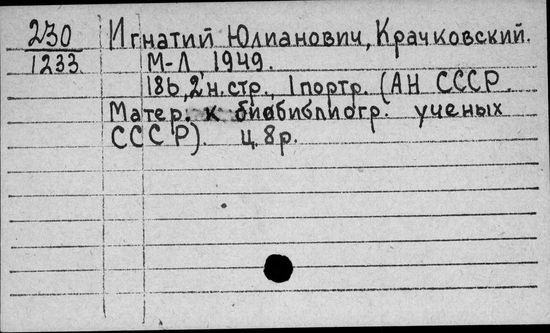 230 Игнатий Юлианович, Крачковский.
1233 М-Л 1949.
186, 2 н.стр., 1 портр. (АН СССР.
Матер. к биобиблиогр. ученых
СССР). ц. 8 р.